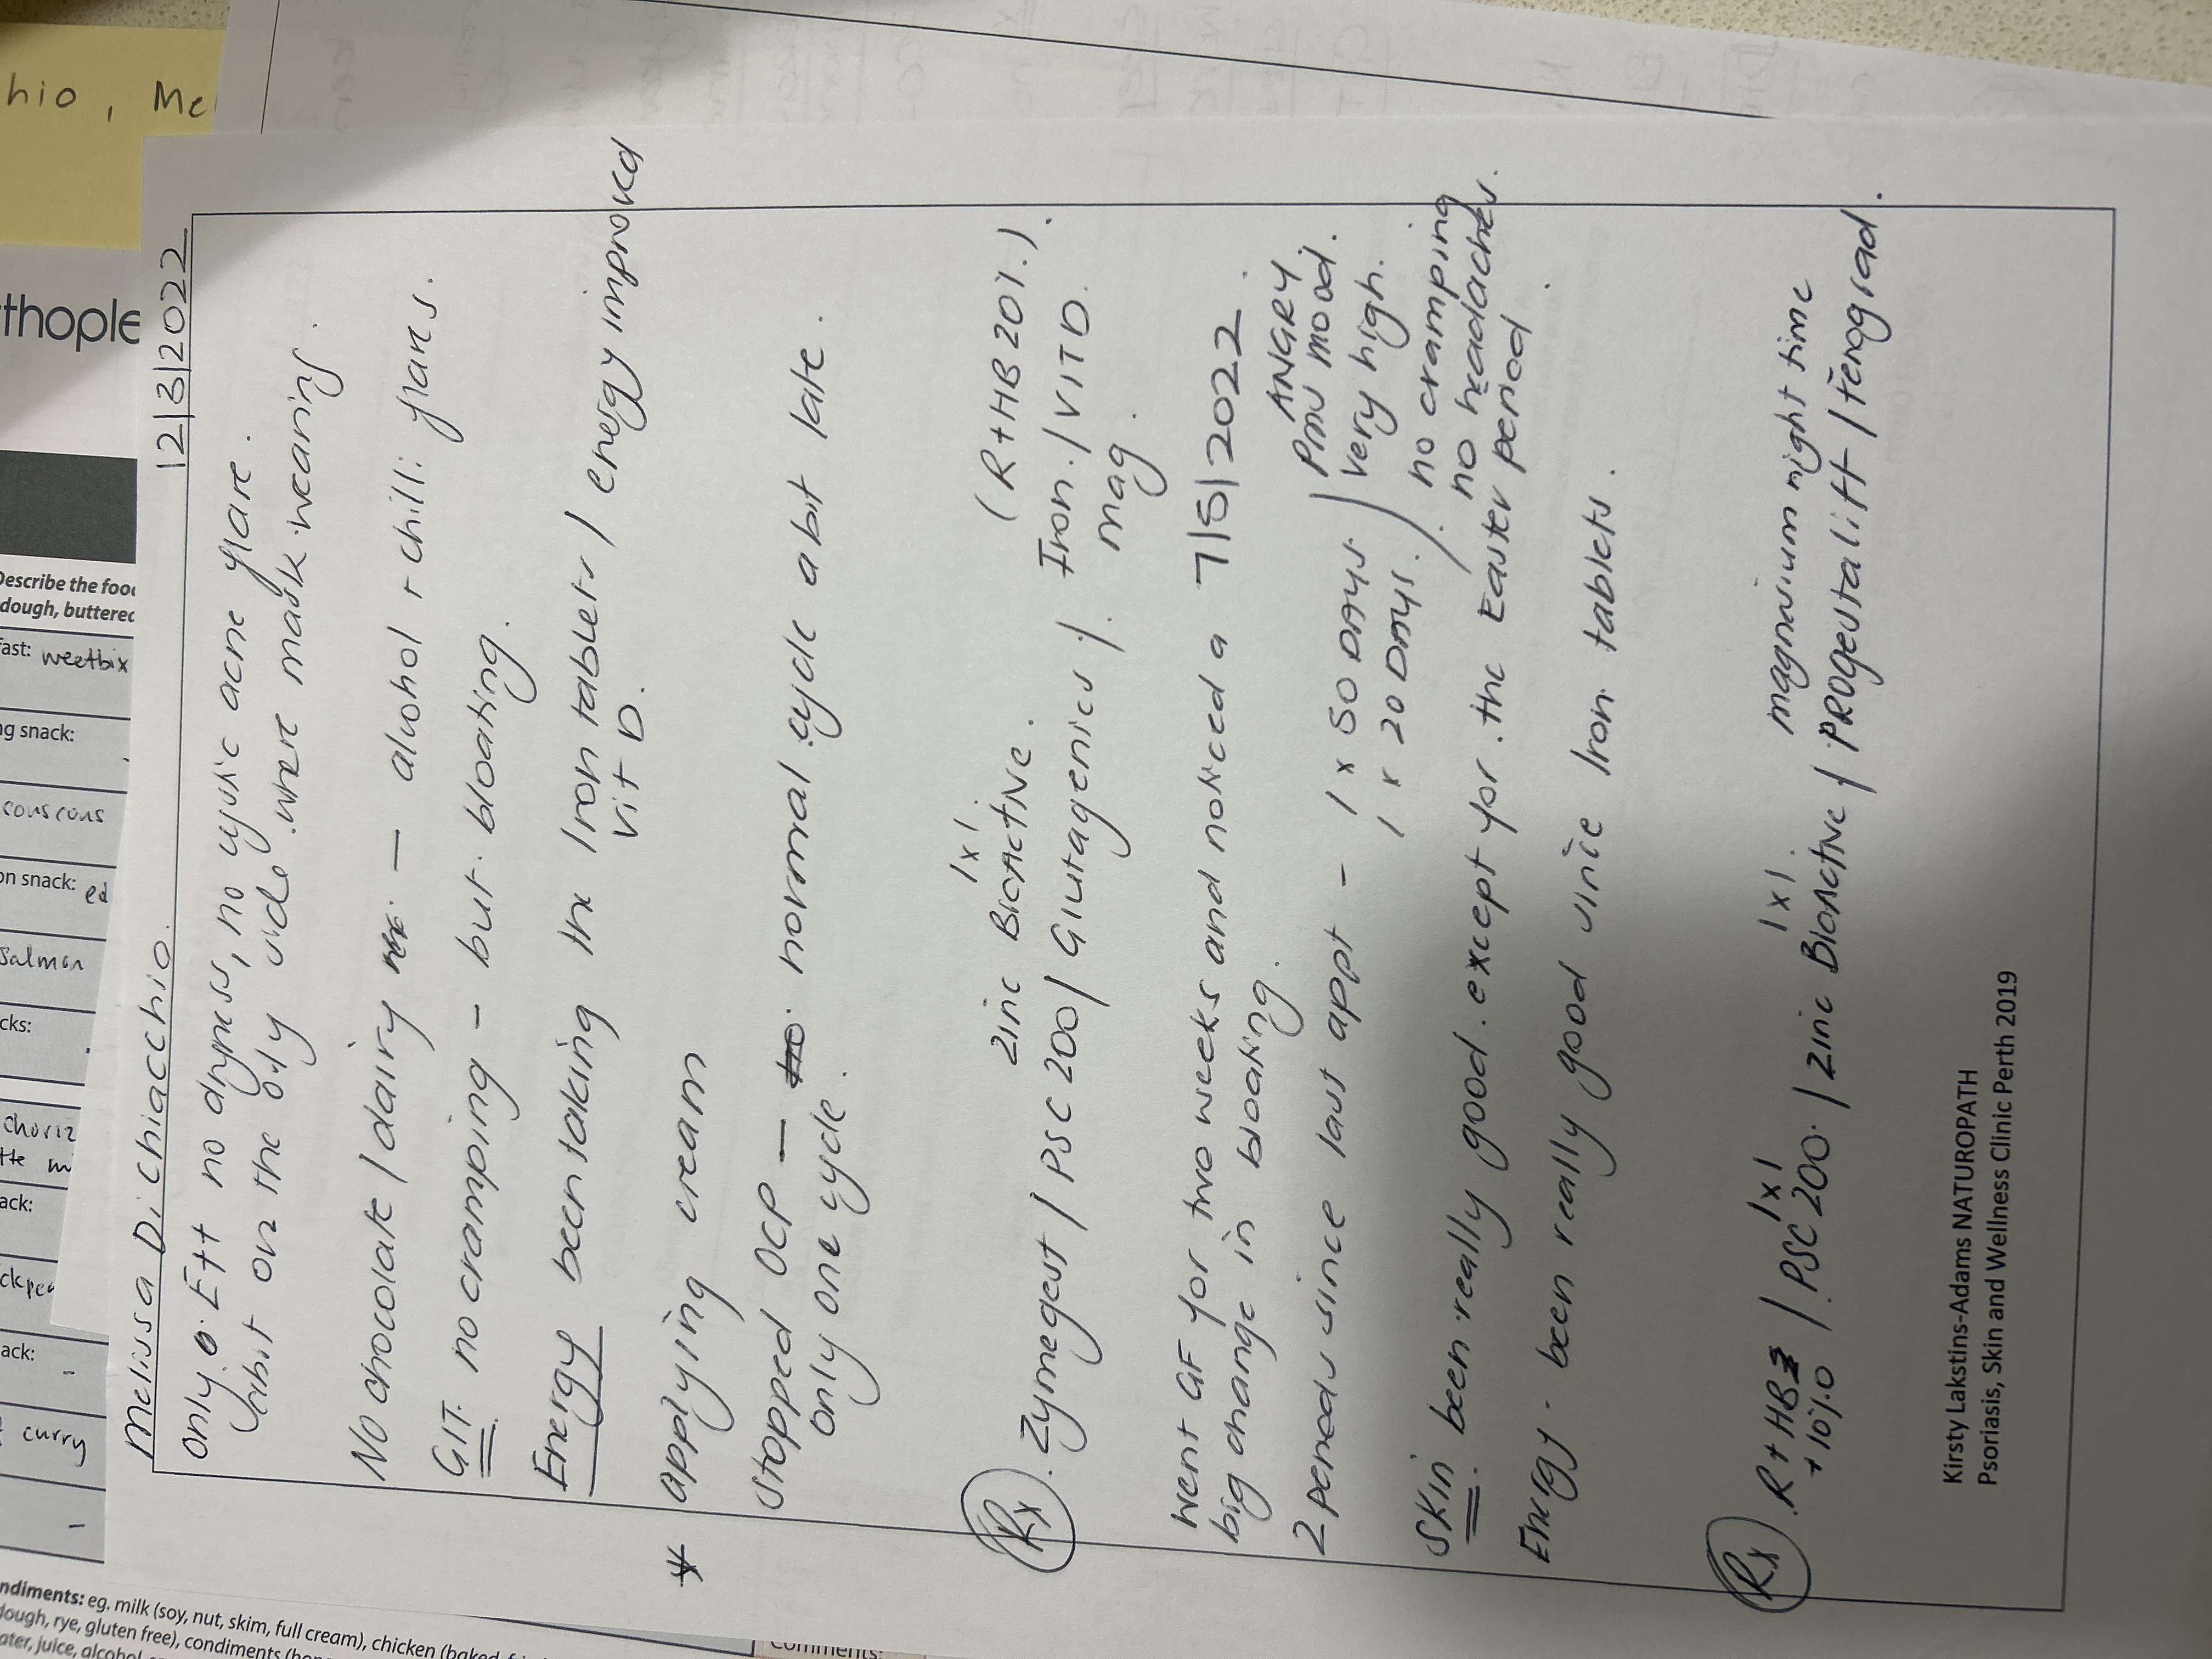 Melissa Di Chiacchio. 12|3|2022
Only Ett no dryness, no cystic acne flare.
abit on the oily side where mask wearing.
No chocolate / dairy — alcohol + chilli flares.
GIT. no cramping - but bloating.
Energy been taking the Iron tablets / energy improved
Vit D.
* applying cream
Stopped OCP — normal cycle abit late.
only one cycle.
1x1 (R+HB 20%.).
Rx Zinc BioActive. Iron. / VIT D.
Zymegest / PSC 200 / Glutagenics / mag.
7|5|2022
Went GF for two weeks and noticed a
big change in bloating.
ANGRY
2 periods since last appt - 1 x 50 DAYS. PMS mood.
1 x 20 DAYS. very high.
no cramping
no headaches.
Skin. been really good. except for the Easter period.
Energy. been really good since Iron tablets.
1x1 1x1. magnesium night time
Rx R + HB / PSC 200. / Zinc BioActive / PROgestalift / Fenograd.
+ 10%.
Kirsty Lakstins-Adams NATUROPATH
Psoriasis, Skin and Wellness Clinic Perth 2019
hio, Me
thople
Describe the food
dough, buttered
fast: weetbix
ng snack:
couscous
on snack: ed
salmon
cks:
choriz
tte m
ack:
ckpea
ack:
curry
ndiments: eg. milk (soy, nut, skim, full cream), chicken (baked,
dough, rye, gluten free), condiments
ater, juice, alcohol
comments: